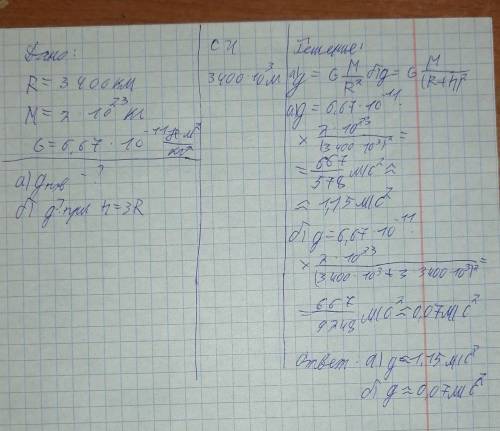 Дано:
R = 3400 км
M = 2 · 10²³ кг
G = 6,67 · 10⁻¹¹ Н·м²/кг²
а) gпов - ?
б) g? при h = 3R
СИ
3400 · 10³ м
Решение:
а) g = G M/R² б) g = G M/(R+h)²
а) g = 6,67 · 10⁻¹¹ ·
× 2 · 10²³/(3400 · 10³)² =
= 667/578 м/с² ≈
≈ 1,15 м/с²
б) g = 6,67 · 10⁻¹¹ ·
× 2 · 10²³/(3400 · 10³ + 3 · 3400 · 10³)² =
= 667/9248 м/с² ≈ 0,07 м/с²
Ответ: а) g ≈ 1,15 м/с²
б) g ≈ 0,07 м/с²